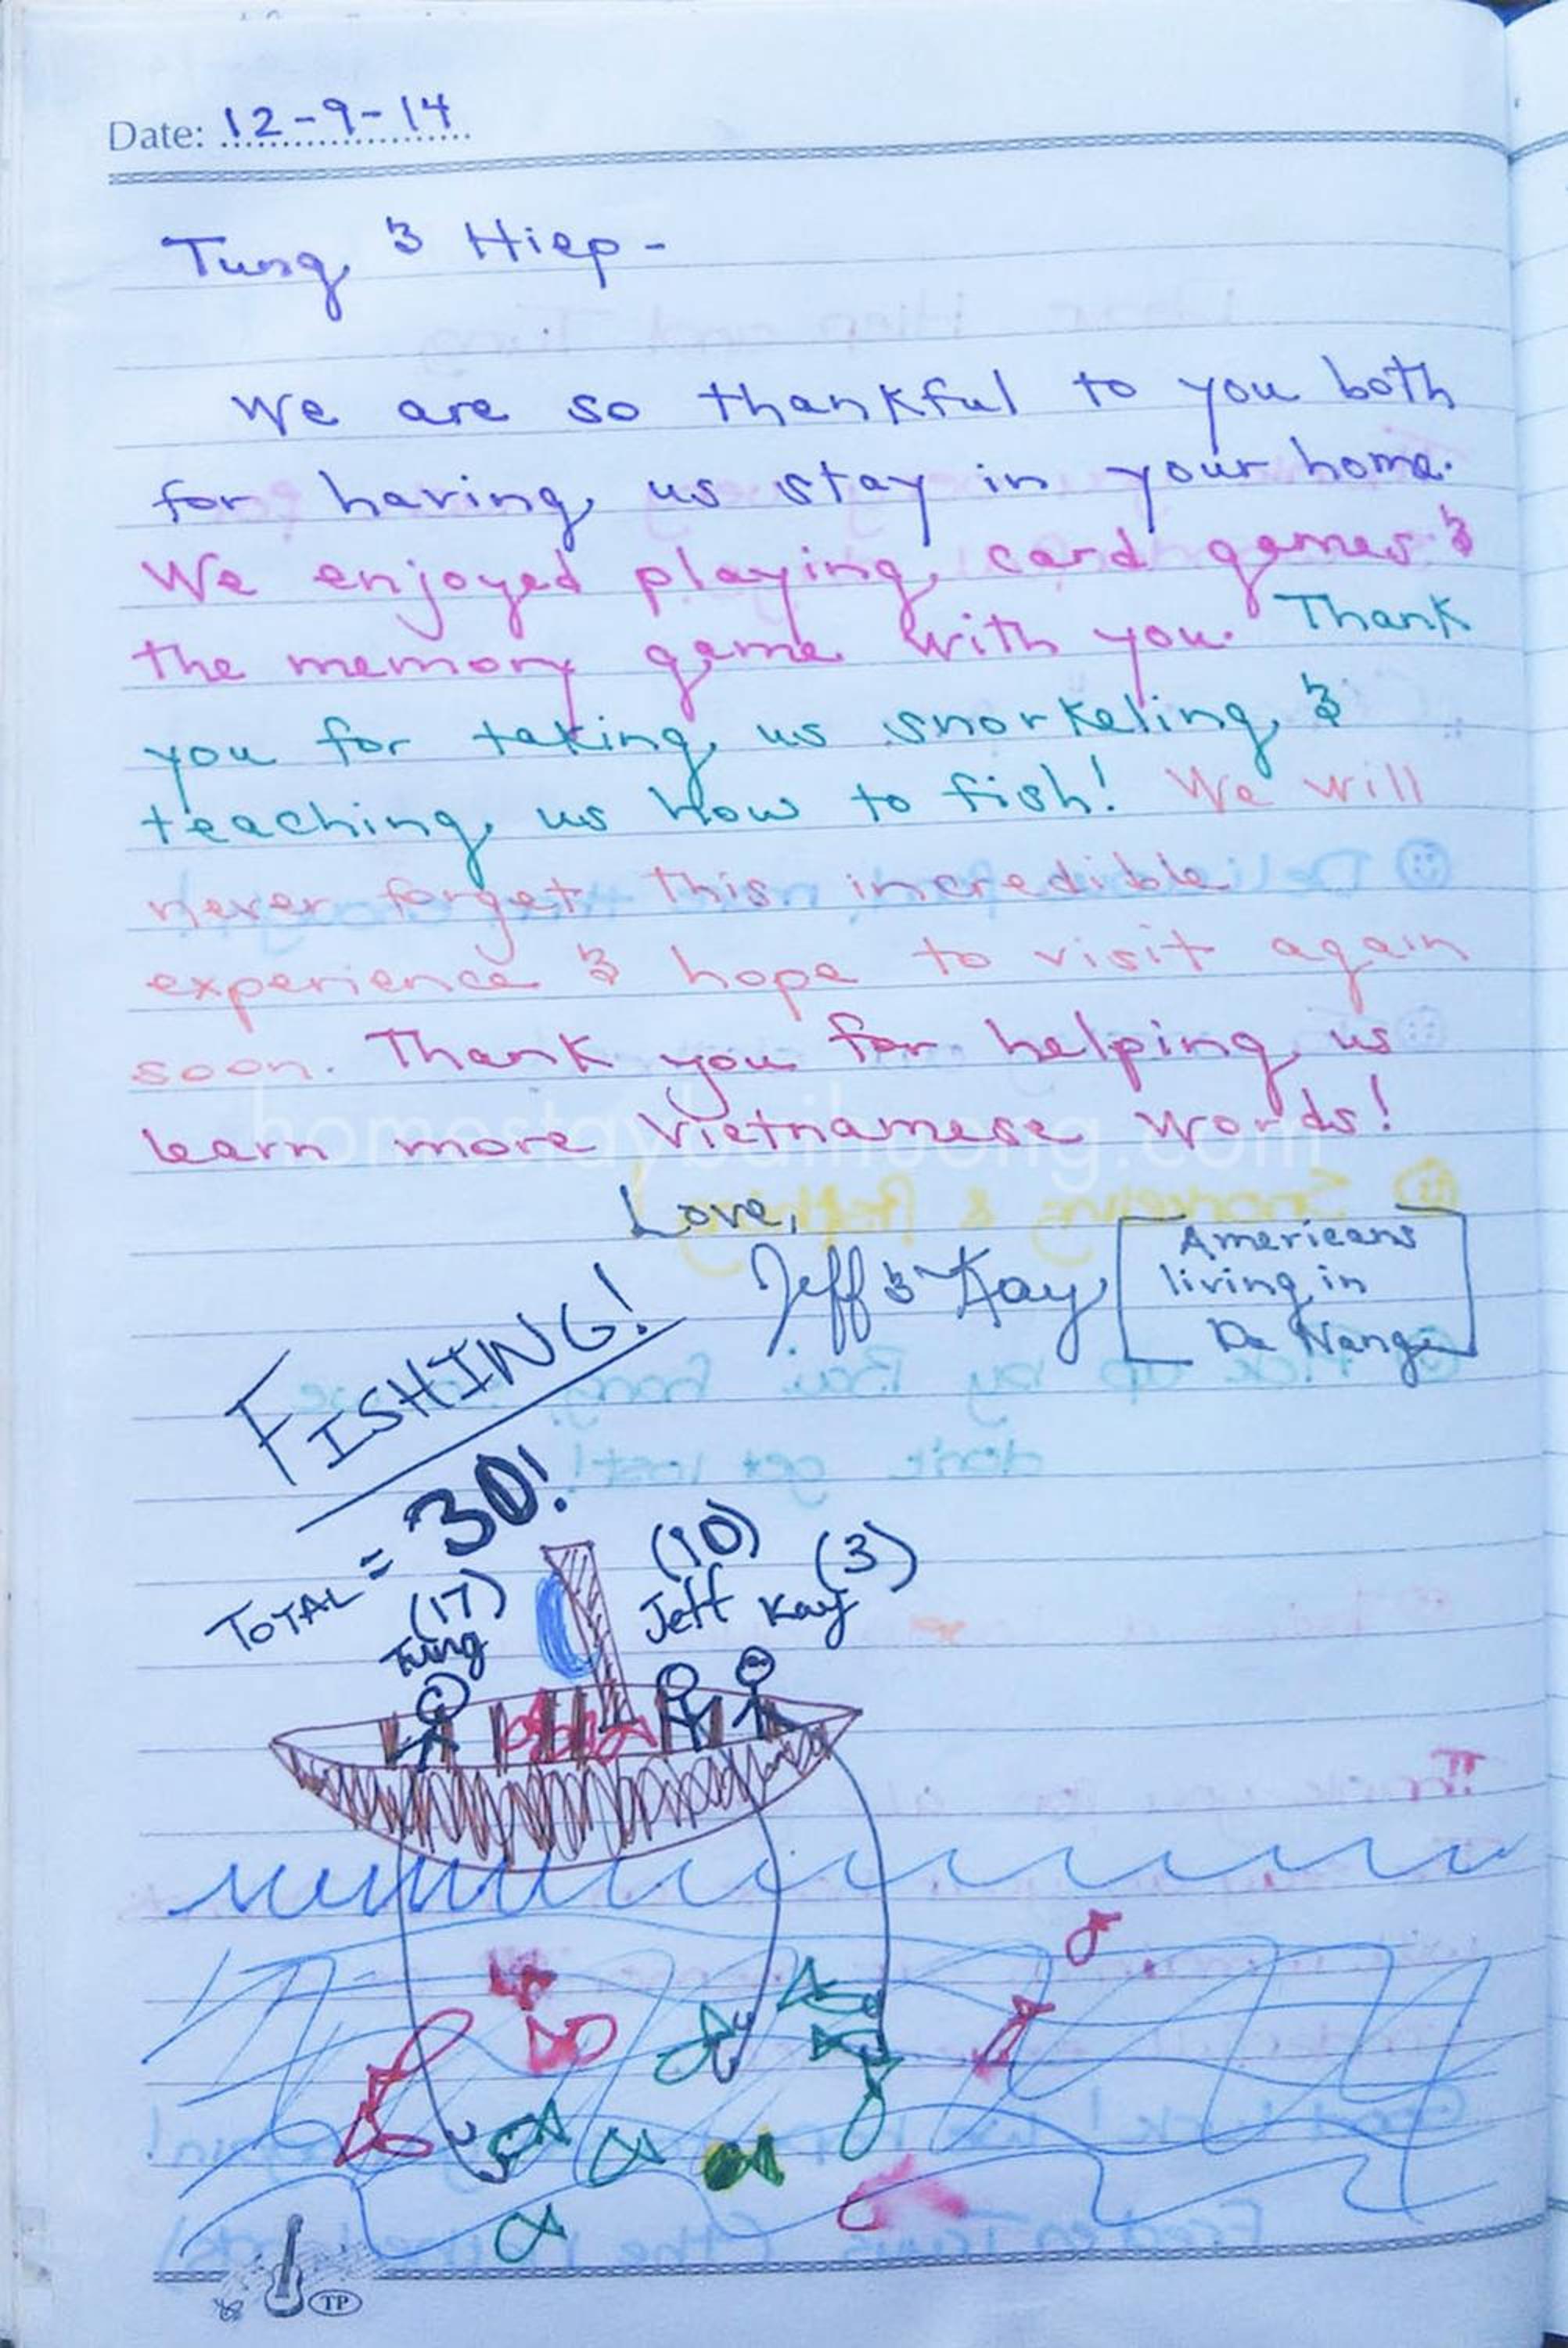 Date: 12-9-14
Tung & Hiep -
We are so thankful to you both
for having us stay in your home.
We enjoyed playing card games &
the memory game with you. Thank
you for taking us snorkeling &
teaching us how to fish! We will
never forget this incredible
experience & hope to visit again
soon. Thank you for helping us
learn more Vietnamese words!
homestaybaihuong.com
Love,
Jeff & Kay
Americans
living in
Da Nang
FISHING!
TOTAL = 30!
(17)
Tung
(10)
Jeff
(3)
Kay
TP